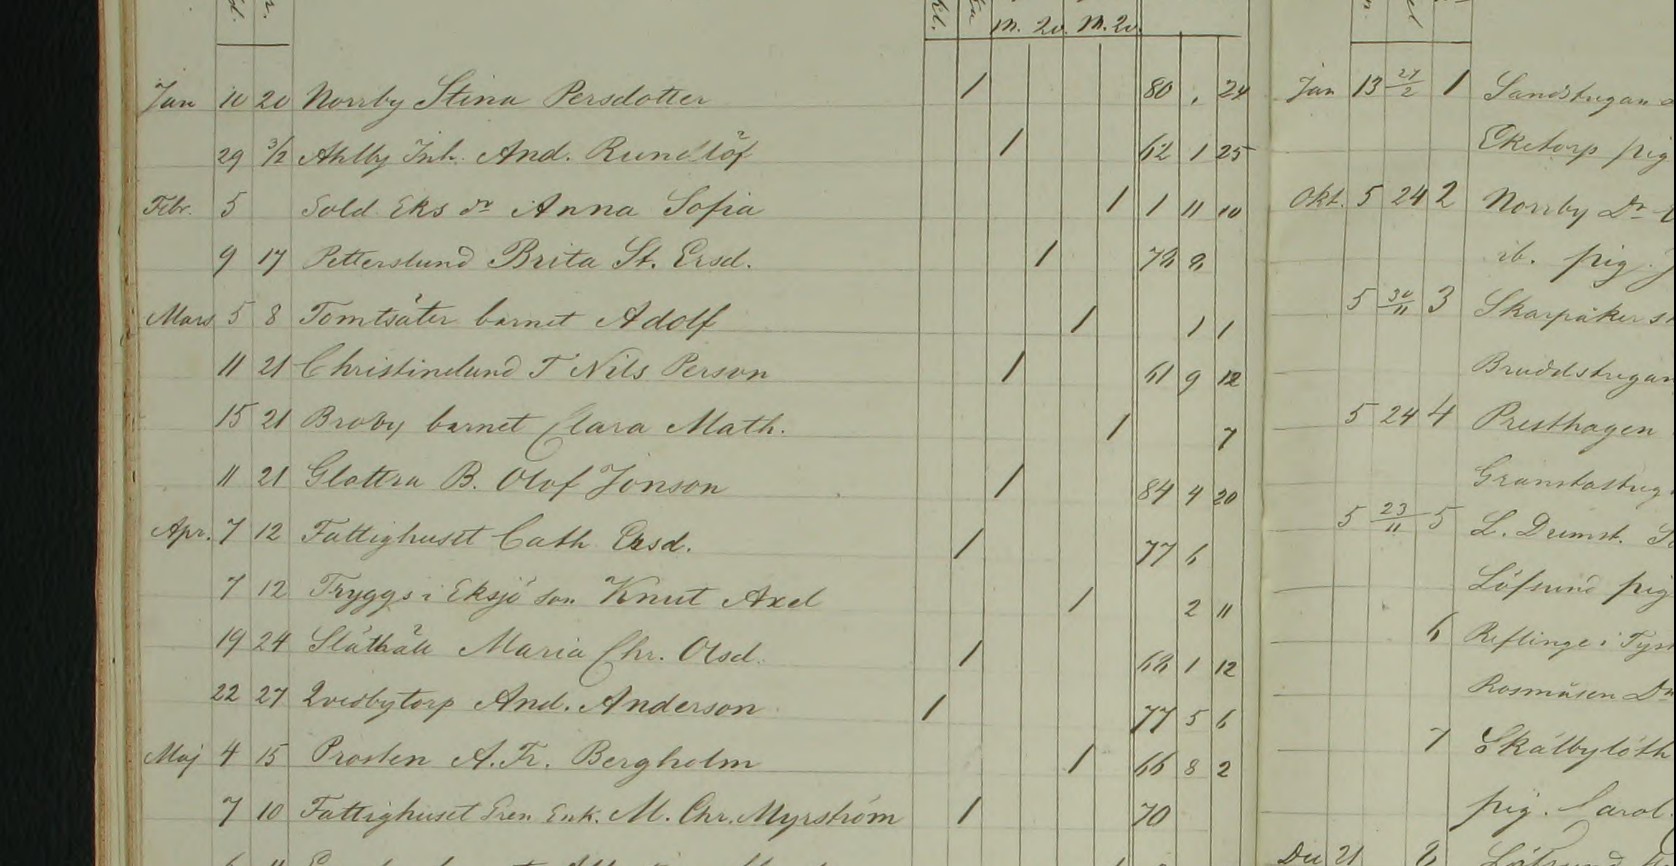 M. Qv. M. Qv.
Jan 10 20 Norrby Stina Persdotter / 80 . 24
29 3/2 Ahlby Inh. And. Rundlöf / 62 1 25
Febr. 5 Sold Eks dr Anna Sofia / 1 11 10
9 17 Petterslund Brita St. Ersd. / 78 8
Mars 5 8 Tomtsäter barnet Adolf / 1 1
11 21 Christinelund T Nils Person / 61 9 12
15 21 Broby barnet Clara Math. / 7
11 21 Glottra B. Olof Jonson / 84 4 20
Apr. 7 12 Fattighuset Cath Ersd. / 77 6
7 12 Tryggs i Eksjö son Knut Axel / 2 11
19 24 Maria Chr. Olsd. / 68 1 12
22 27 Qvedbytorp And. Anderson / 77 5 6
Maj 4 15 Prosten A. Fr. Bergholm / 66 8 2
7 10 Fattighuset Enk. M. Chr. Myrström / 70
Jan 13 27/2 1 Sandstugan
Eketorp pig
Okt. 5 24 2 Norrby Dr
ib. pig. J
5 30/11 3 Skarpåker
Bruddstugan
5 24 4 Presthagen
Granstastug
5 23/11 5 L. Deinst.
Löfsund pig
6 Reflinge i Tyst
Rosmåsen Dr
7 Skälbylöth
pig. Carol.
Dec 21 8